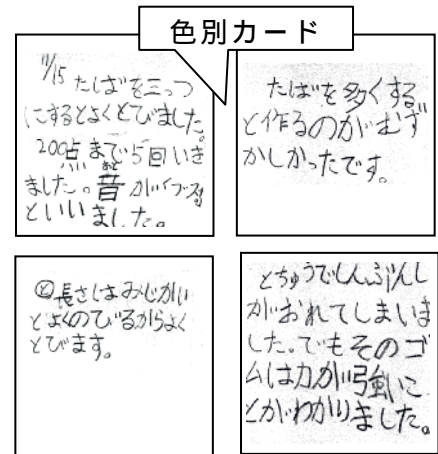 色別カード
11/15 たばを三っつ
にするとよくとびました。
200点まで5回いき
ました。音がブースー
といいました。
たばを多くする
と作るのがむず
かしかったです。
と 長さはみじかい
とよくのびるからよく
とびます。
とちゅうでしんぶんし
がおれてしまいま
した。でもそのゴ
ムは力が強いこ
とがわかりました。